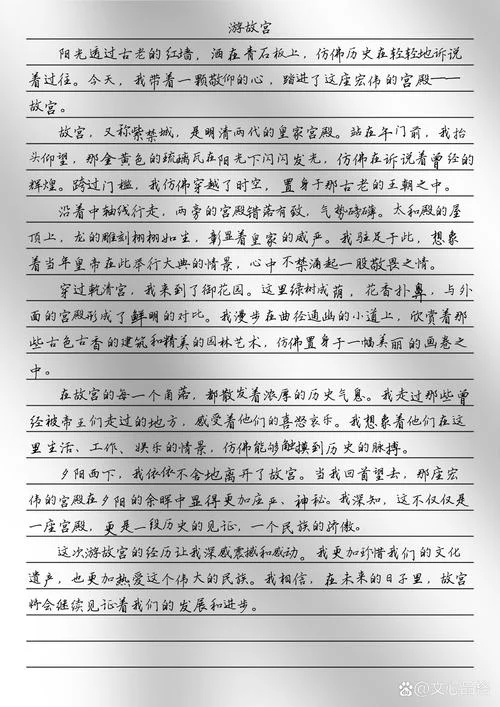 游故宫
阳光透过古老的红墙，洒在青石板上，仿佛历史在轻轻地诉说
着过往。今天，我带着一颗敬仰的心，踏进了这座宏伟的宫殿——
故宫。
故宫，又称紫禁城，是明清两代的皇家宫殿。站在午门前，我抬
头仰望，那金黄色的琉璃瓦在阳光下闪闪发光，仿佛在诉说着曾经的
辉煌。跨过门槛，我仿佛穿越了时空，置身于那古老的王朝之中。
沿着中轴线行走，两旁的宫殿错落有致，气势磅礴。太和殿的屋
顶上，龙的雕刻栩栩如生，彰显着皇家的威严。我驻足于此，想象
着当年皇帝在此举行大典的情景，心中不禁涌起一股敬畏之情。
穿过乾清宫，我来到了御花园。这里绿树成荫，花香扑鼻，与外
面的宫殿形成了鲜明的对比。我漫步在曲径通幽的小道上，欣赏着那
些古色古香的建筑和精美的园林艺术，仿佛置身于一幅美丽的画卷之
中。
在故宫的每一个角落，都散发着浓厚的历史气息。我走过那些曾
经被帝王们走过的地方，感受着他们的喜怒哀乐。我想象着他们在这
里生活、工作、娱乐的情景，仿佛能够触摸到历史的脉搏。
夕阳西下，我依依不舍地离开了故宫。当我回首望去，那座宏
伟的宫殿在夕阳的余晖中显得更加庄严、神秘。我深知，这不仅仅是
一座宫殿，更是一段历史的见证，一个民族的骄傲。
这次游故宫的经历让我深感震撼和感动。我更加珍惜我们的文化
遗产，也更加热爱这个伟大的民族。我相信，在未来的日子里，故宫
将会继续见证着我们的发展和进步。
@文心品格